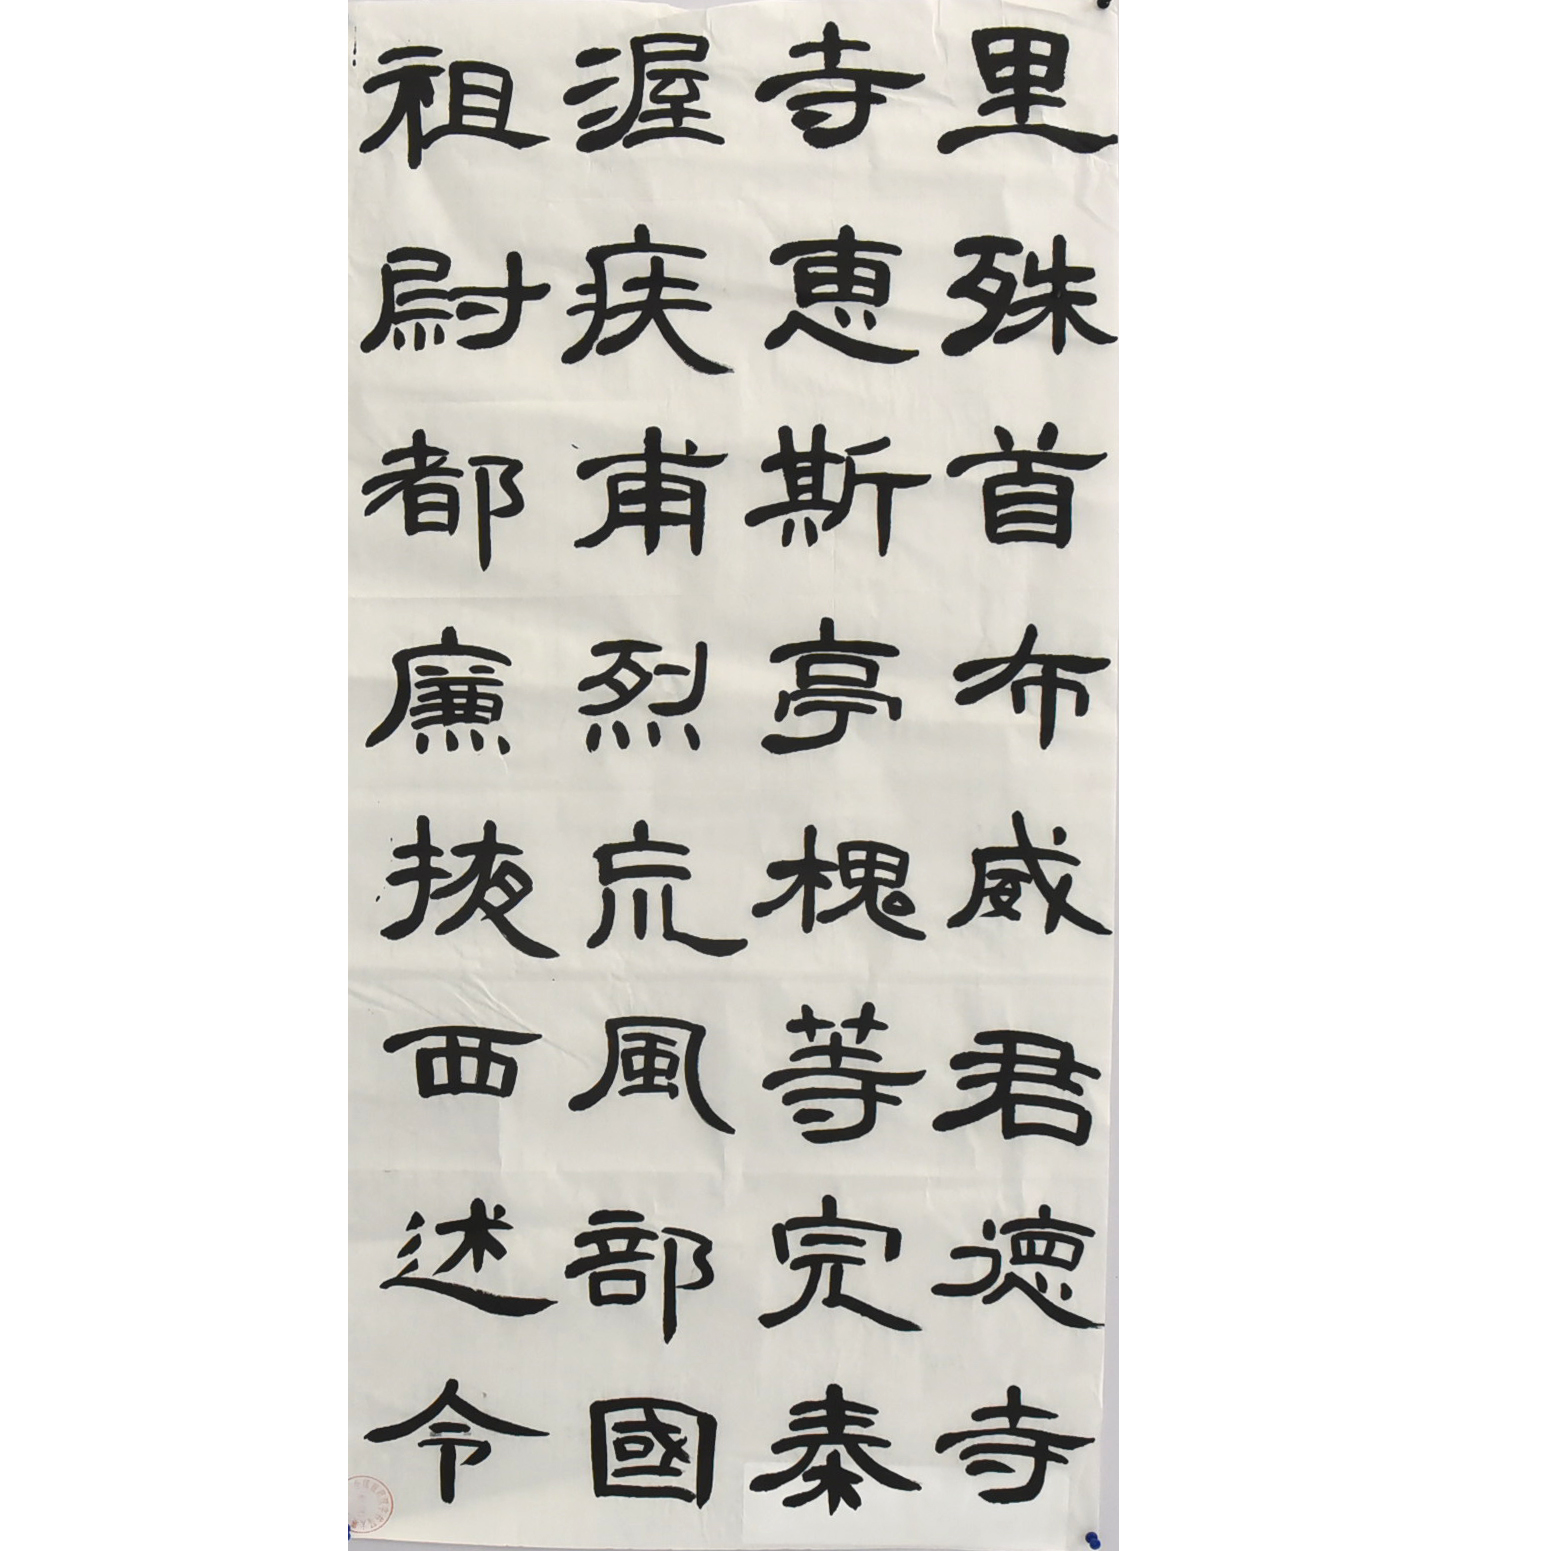 里殊首布威君德寺
寺恵斯亭槐等完秦
渥疾甫烈㐬風部國
祖尉都廉掖西述令